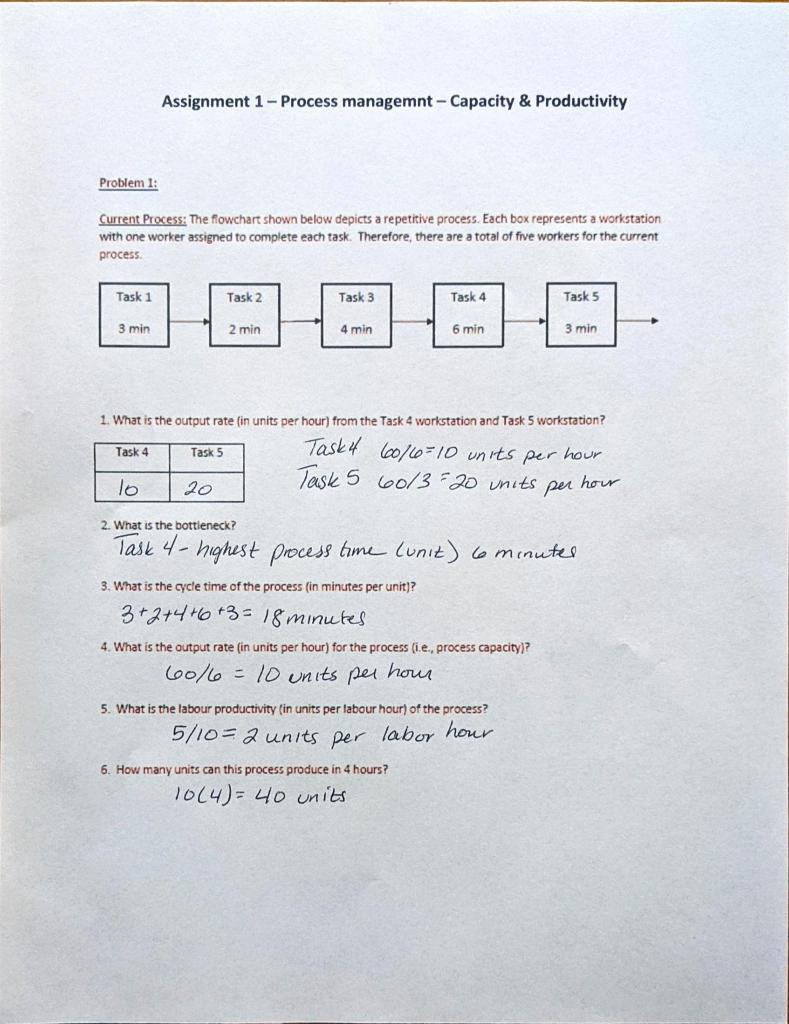 Assignment 1 – Process managemnt – Capacity & Productivity
Problem 1:
Current Process: The flowchart shown below depicts a repetitive process. Each box represents a workstation
with one worker assigned to complete each task. Therefore, there are a total of five workers for the current
process.
Task 1 Task 2 Task 3 Task 4 Task 5
3 min 2 min 4 min 6 min 3 min
1. What is the output rate (in units per hour) from the Task 4 workstation and Task 5 workstation?
Task 4 Task 5 Task 4 60/6=10 units per hour
10 20 Task 5 60/3=20 units per hour
2. What is the bottleneck?
Task 4 - highest process time (unit) 6 minutes
3. What is the cycle time of the process (in minutes per unit)?
3+2+4+6+3= 18 minutes
4. What is the output rate (in units per hour) for the process (i.e., process capacity)?
60/6 = 10 units per hour
5. What is the labour productivity (in units per labour hour) of the process?
5/10= 2 units per labor hour
6. How many units can this process produce in 4 hours?
10(4)= 40 units